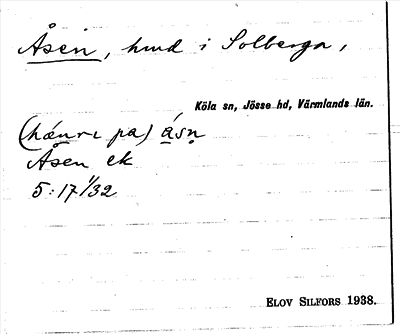 Åsen, hmd i Solberga,
Köla sn, Jösse hd, Värmlands län.
(hænrı pa) åsn
Åsen ek
5:17 1/32
ELOV SILFORS 1938.